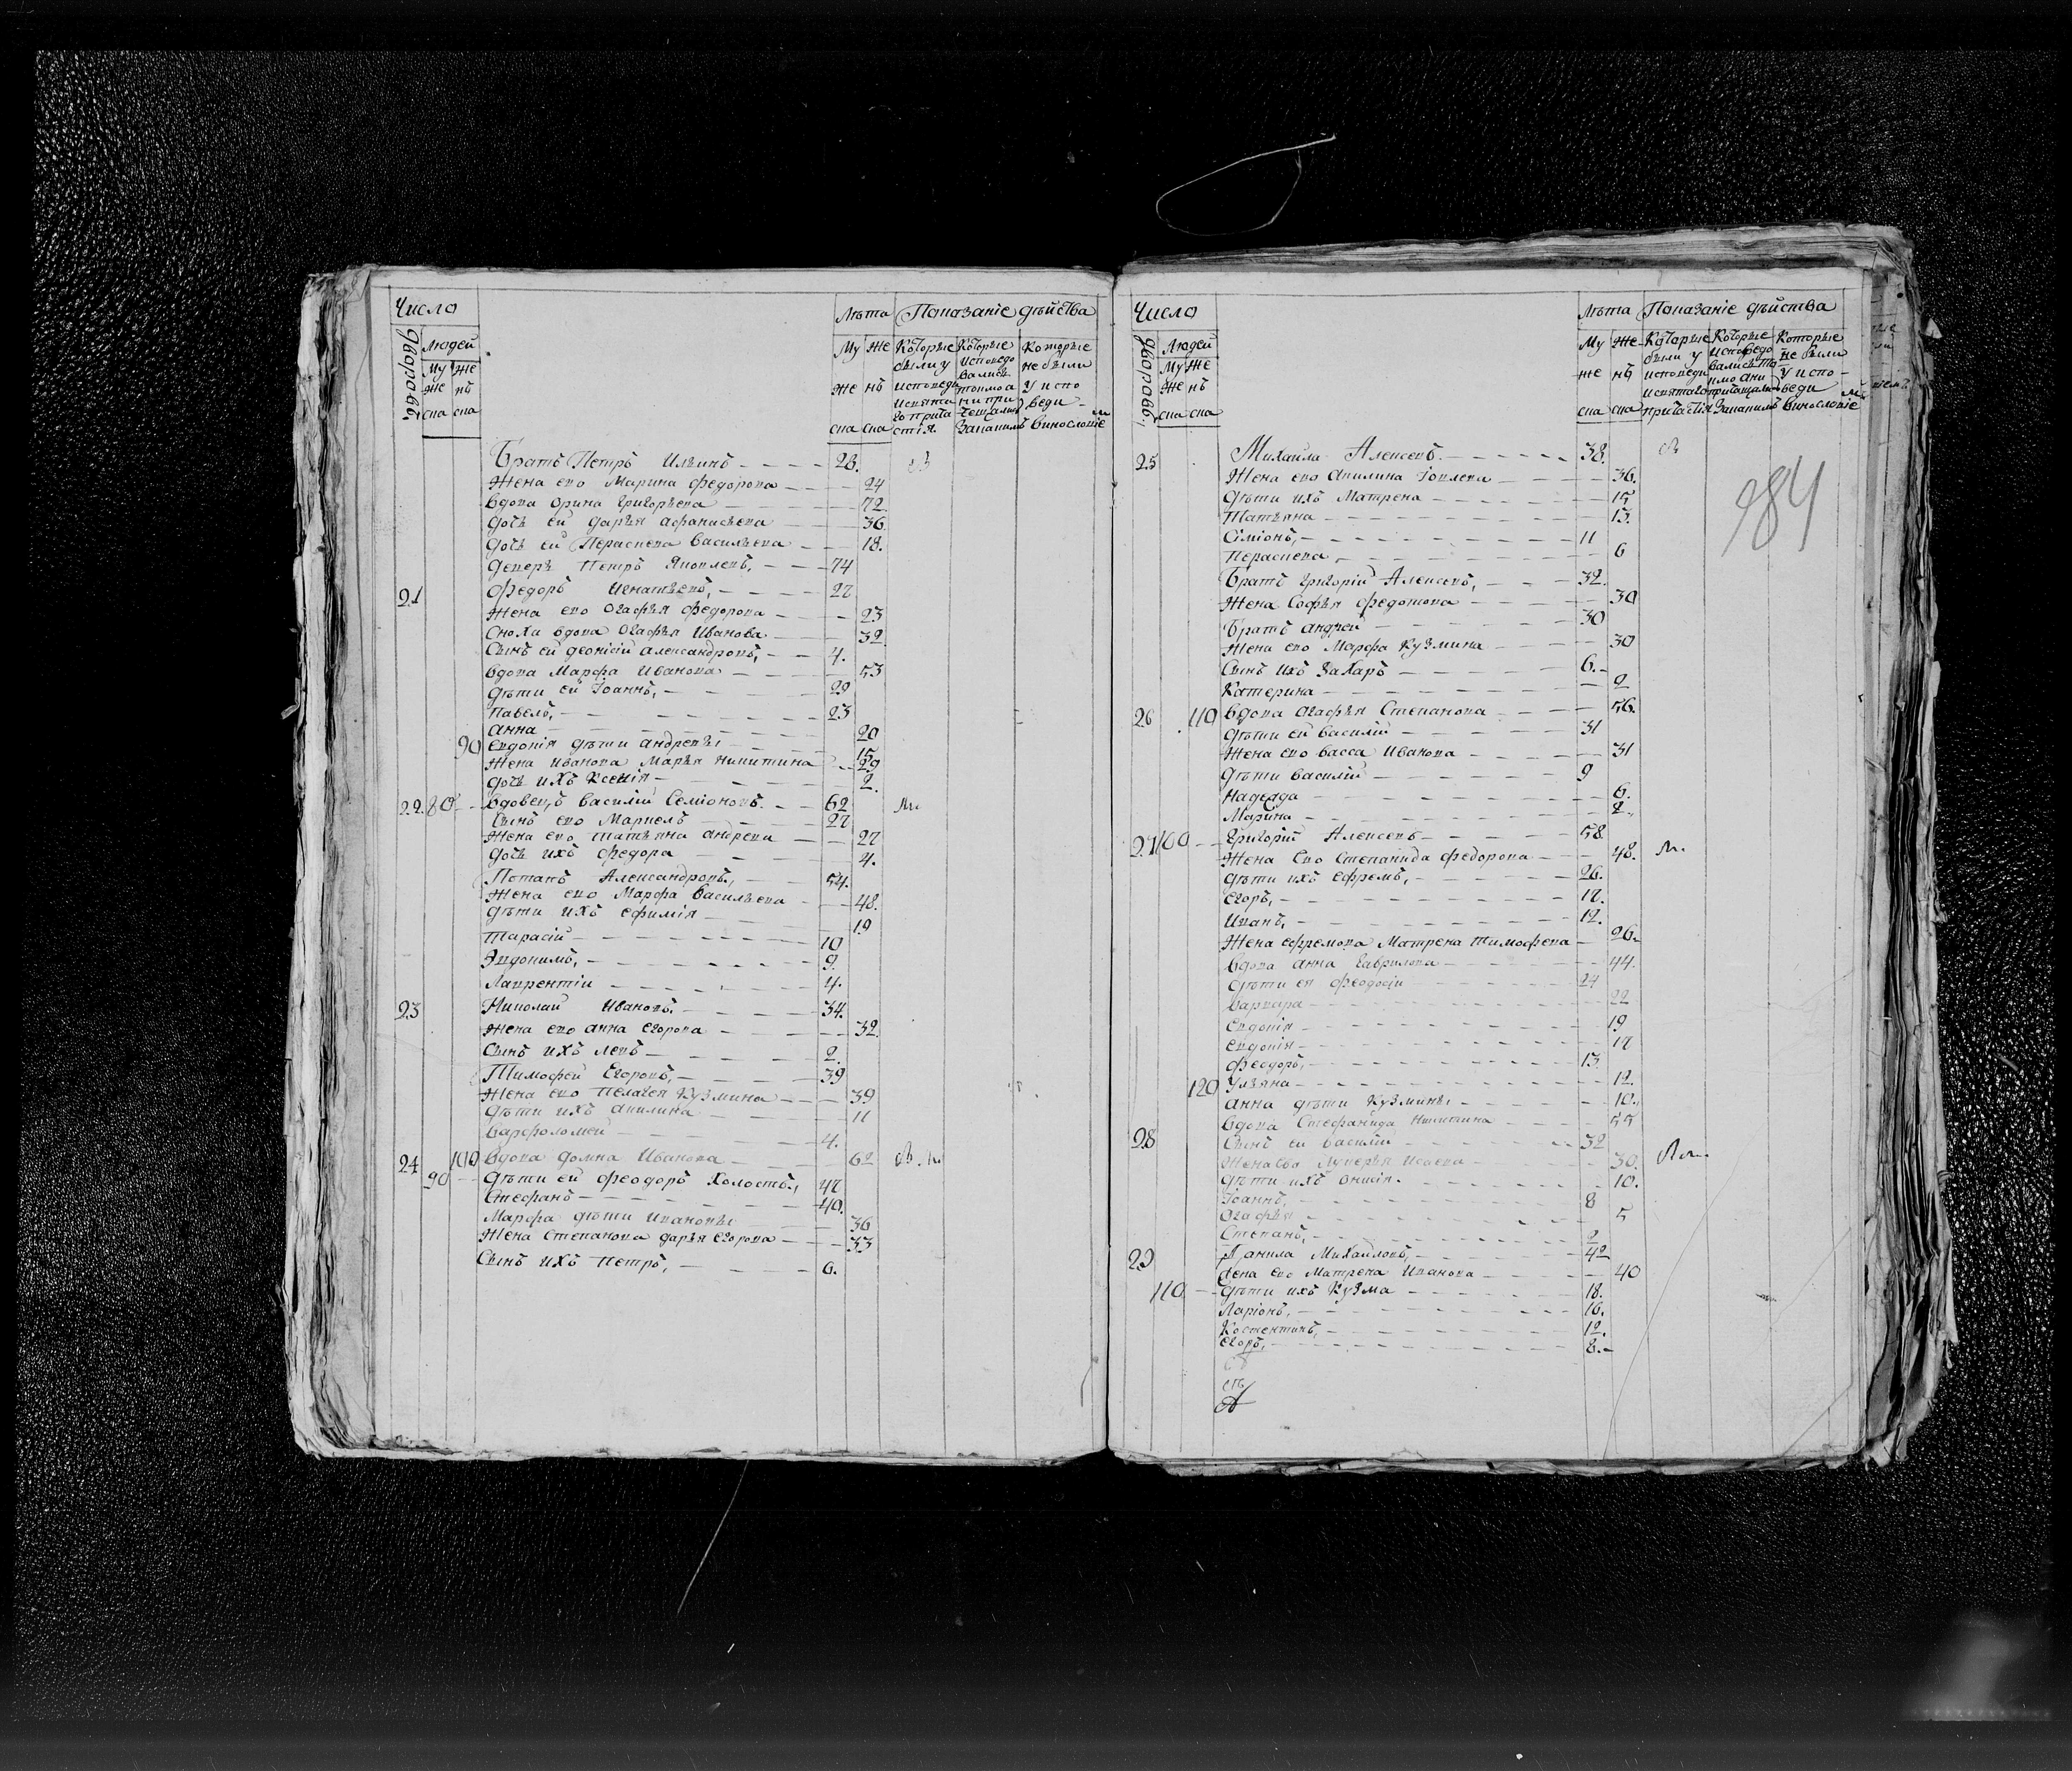 Число
Лѣта Показаніе дѣйства
дворовъ
Людей
Му Же
же нъ
ска ска
Му Же
же нъ
ска ска
Которые были у исповеди и святаго причастія
Которые исповедовались токмо а не причащались за какимъ
Которые не были у исповеди винословіемъ
Братъ Петръ Ильинъ 28.
Жена его Марина Федорова 24
Вдова Орина Григорьева 72.
Дочь ей Дарья Афанасьева 36
Дочь ей Пераскева Васильева 18.
Деверь Петръ Яковлевъ, 74
21 Федоръ Игнатьевъ, 27
Жена его Огафья Федорова 23
Сноха вдова Огафья Иванова 32.
Сынъ ей Деонисій Александровъ, 4.
Вдова Марфа Иванова 53
Дѣти ей Іоаннъ, 29
Павелъ, 23
Анна 20
90 Евдокія дѣти Андреевы 15
Жена Иванова Марья Никитина 29
Дочь ихъ Ксенія 2.
22. 80 Вдовецъ Василій Семіоновъ. 62
Сынъ его Маркелъ 27
Жена его Татьяна Андреева 27
Дочь ихъ Федора 4.
Потапъ Александровъ, 54.
Жена его Марфа Васильева 48.
Дѣти ихъ Ефимія 19
Тарасій 10
Евдокимъ, 9.
Лаврентіи 4.
23 Николай Ивановъ. 34.
Жена его Анна Егорова 32.
Сынъ ихъ Левъ 2.
Тимофей Егоровъ, 39
Жена его Пелагея Кузмина 39
Дѣти ихъ Акилина 11
Варфоломей 4.
24 100 Вдова Домна Иванова 62
90 Дѣти ей Феодоръ холостъ, 47
Стефанъ 40.
Марфа дѣти Ивановы 36
Жена Степанова Дарья Егорова 33
Сынъ ихъ Петръ, 6.
Число
Лѣта Показаніе дѣйства
дворовъ
Людей
Му Же
же нъ
ска ска
Му Же
же нъ
ска ска
Которые были у исповеди и святаго причастія
Которые исповедовались токмо а не причащались за какимъ
Которые не были у исповеди винословіемъ
984
25 Михаила Алексеевъ. 38.
Жена его Акилина Іовлева 36.
Дѣти ихъ Матрена 15
Татьяна 13.
Сіміонъ, 11
Пераскева, 6
Братъ Григорій Алексеевъ, 32.
Жена Софья Федотова 30
Братъ Андрей 30
Жена его Марфа Кузмина 30
Сынъ ихъ Захаръ 6.
Катерина 2
26 110 Вдова Огафья Степанова 56.
Дѣти ей Василій 31
Жена его Васса Иванова 31
Дѣти Василій 9
Надежда 6.
Марина 2.
27 100 Григорій Алексеевъ 58
Жена Его Степанида Федорова 48.
Дѣти ихъ Ефремъ, 26.
Егоръ, 17.
Иванъ, 12.
Жена Ефремова Матрена Тимофеева 26.
Вдова Анна Гаврилова 44.
Дѣти ея Феодосій 24
Варвара 22
Евдокія 19
Евдокія 17
Феодоръ, 13
120 Ульяна 12.
Анна дѣти Кузмины 10.
Вдова Стефанида Никитина 55
28 Сынъ ей Василій 32
Жена его Лукерья Исаева 30.
Дѣти ихъ Онисія. 10.
Іоаннъ, 8
Огафья 5
Степанъ, 2
29 Данила Михайловъ, 42
Жена его Матрена Иванова 40
110 Дѣти ихъ Кузма 18.
Ларіонъ, 16.
Костентинъ, 12.
Егоръ, 8.